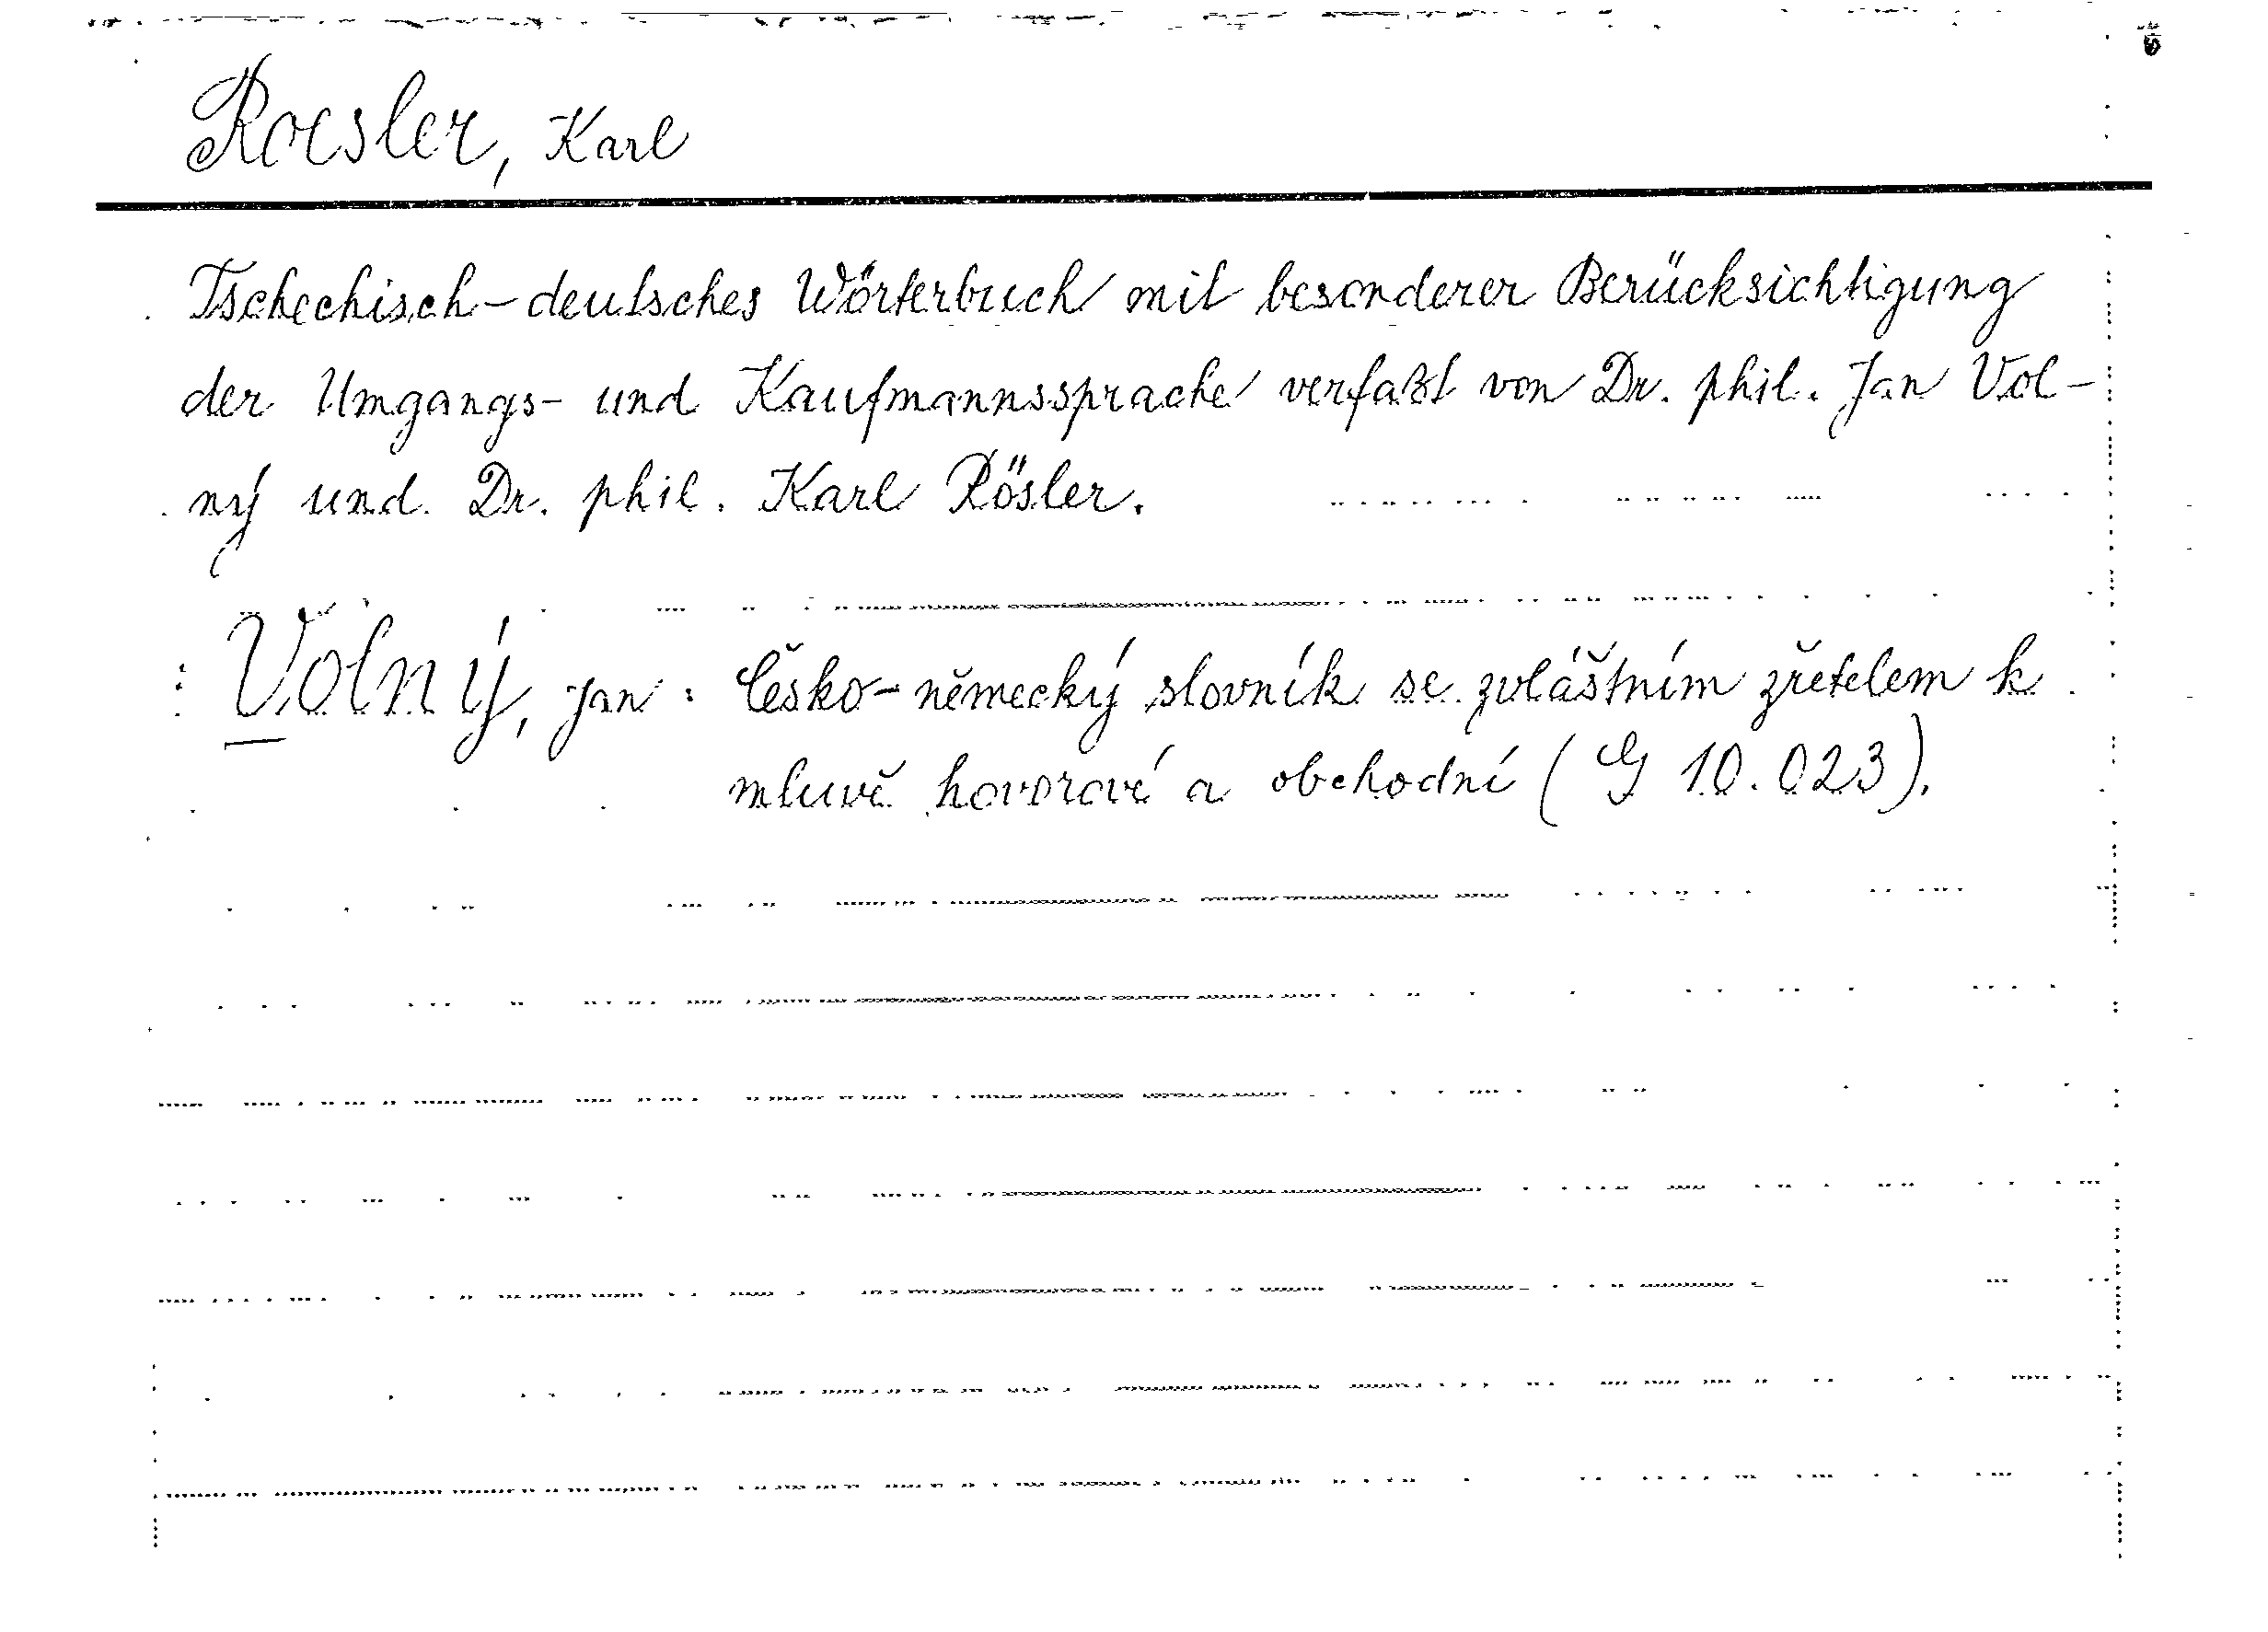 Roesler, Karl
Tschechisch-deutsches Wörterbuch mit besonderer Berücksichtigung
der Umgangs- und Kaufmannssprache verfaßt von Dr. phil. Jan Vol-
ný und Dr. phil. Karl Rösler.
Volný, Jan: Česko-německý slovník se zvláštním zřetelem k
mluvě hovorové a obchodní (G 10.023).